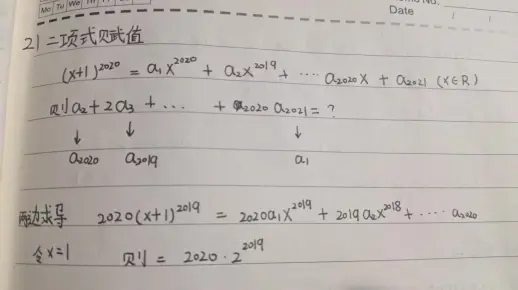 Mo Tu We Th Fr Sa Su
Date
21 二项式赋值
(x+1)^2020 = a₁x^2020 + a₂x^2019 + ⋯ a₂₀₂₀x + a₂₀₂₁ (x∈R)
则a₂+2a₃ + ⋯ + 2020 a₂₀₂₁ = ?
↓ ↓ ↓
a₂₀₂₀ a₂₀₁₉ a₁
两边求导 2020(x+1)^2019 = 2020a₁x^2019 + 2019a₂x^2018 + ⋯ a₂₀₂₀
令x=1 则 = 2020·2^2019